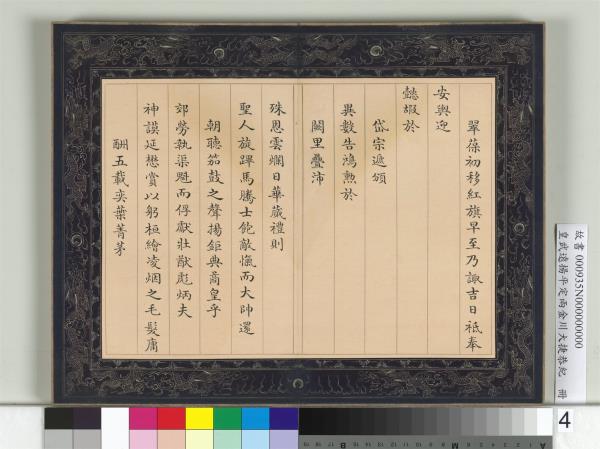 翠葆初移紅旗早至乃諏吉日祗奉
安輿迎
懿嘏於
岱宗遞頒
異數告鴻勲於
闕里疊沛
殊恩雲爛日華葳禮則
聖人旋蹕馬騰士飽敵愾而大帥還
朝聽笳鼓之聲揚鉅典裔皇乎
郊勞執渠魁而俘獻壯猷彪炳夫
神謨延懋賞以躬桓繪凌烟之毛髮庸
酬五載奕葉菁茅
故書 000935N000000000
皇武遠揚平定兩金川大捷恭紀 冊
4